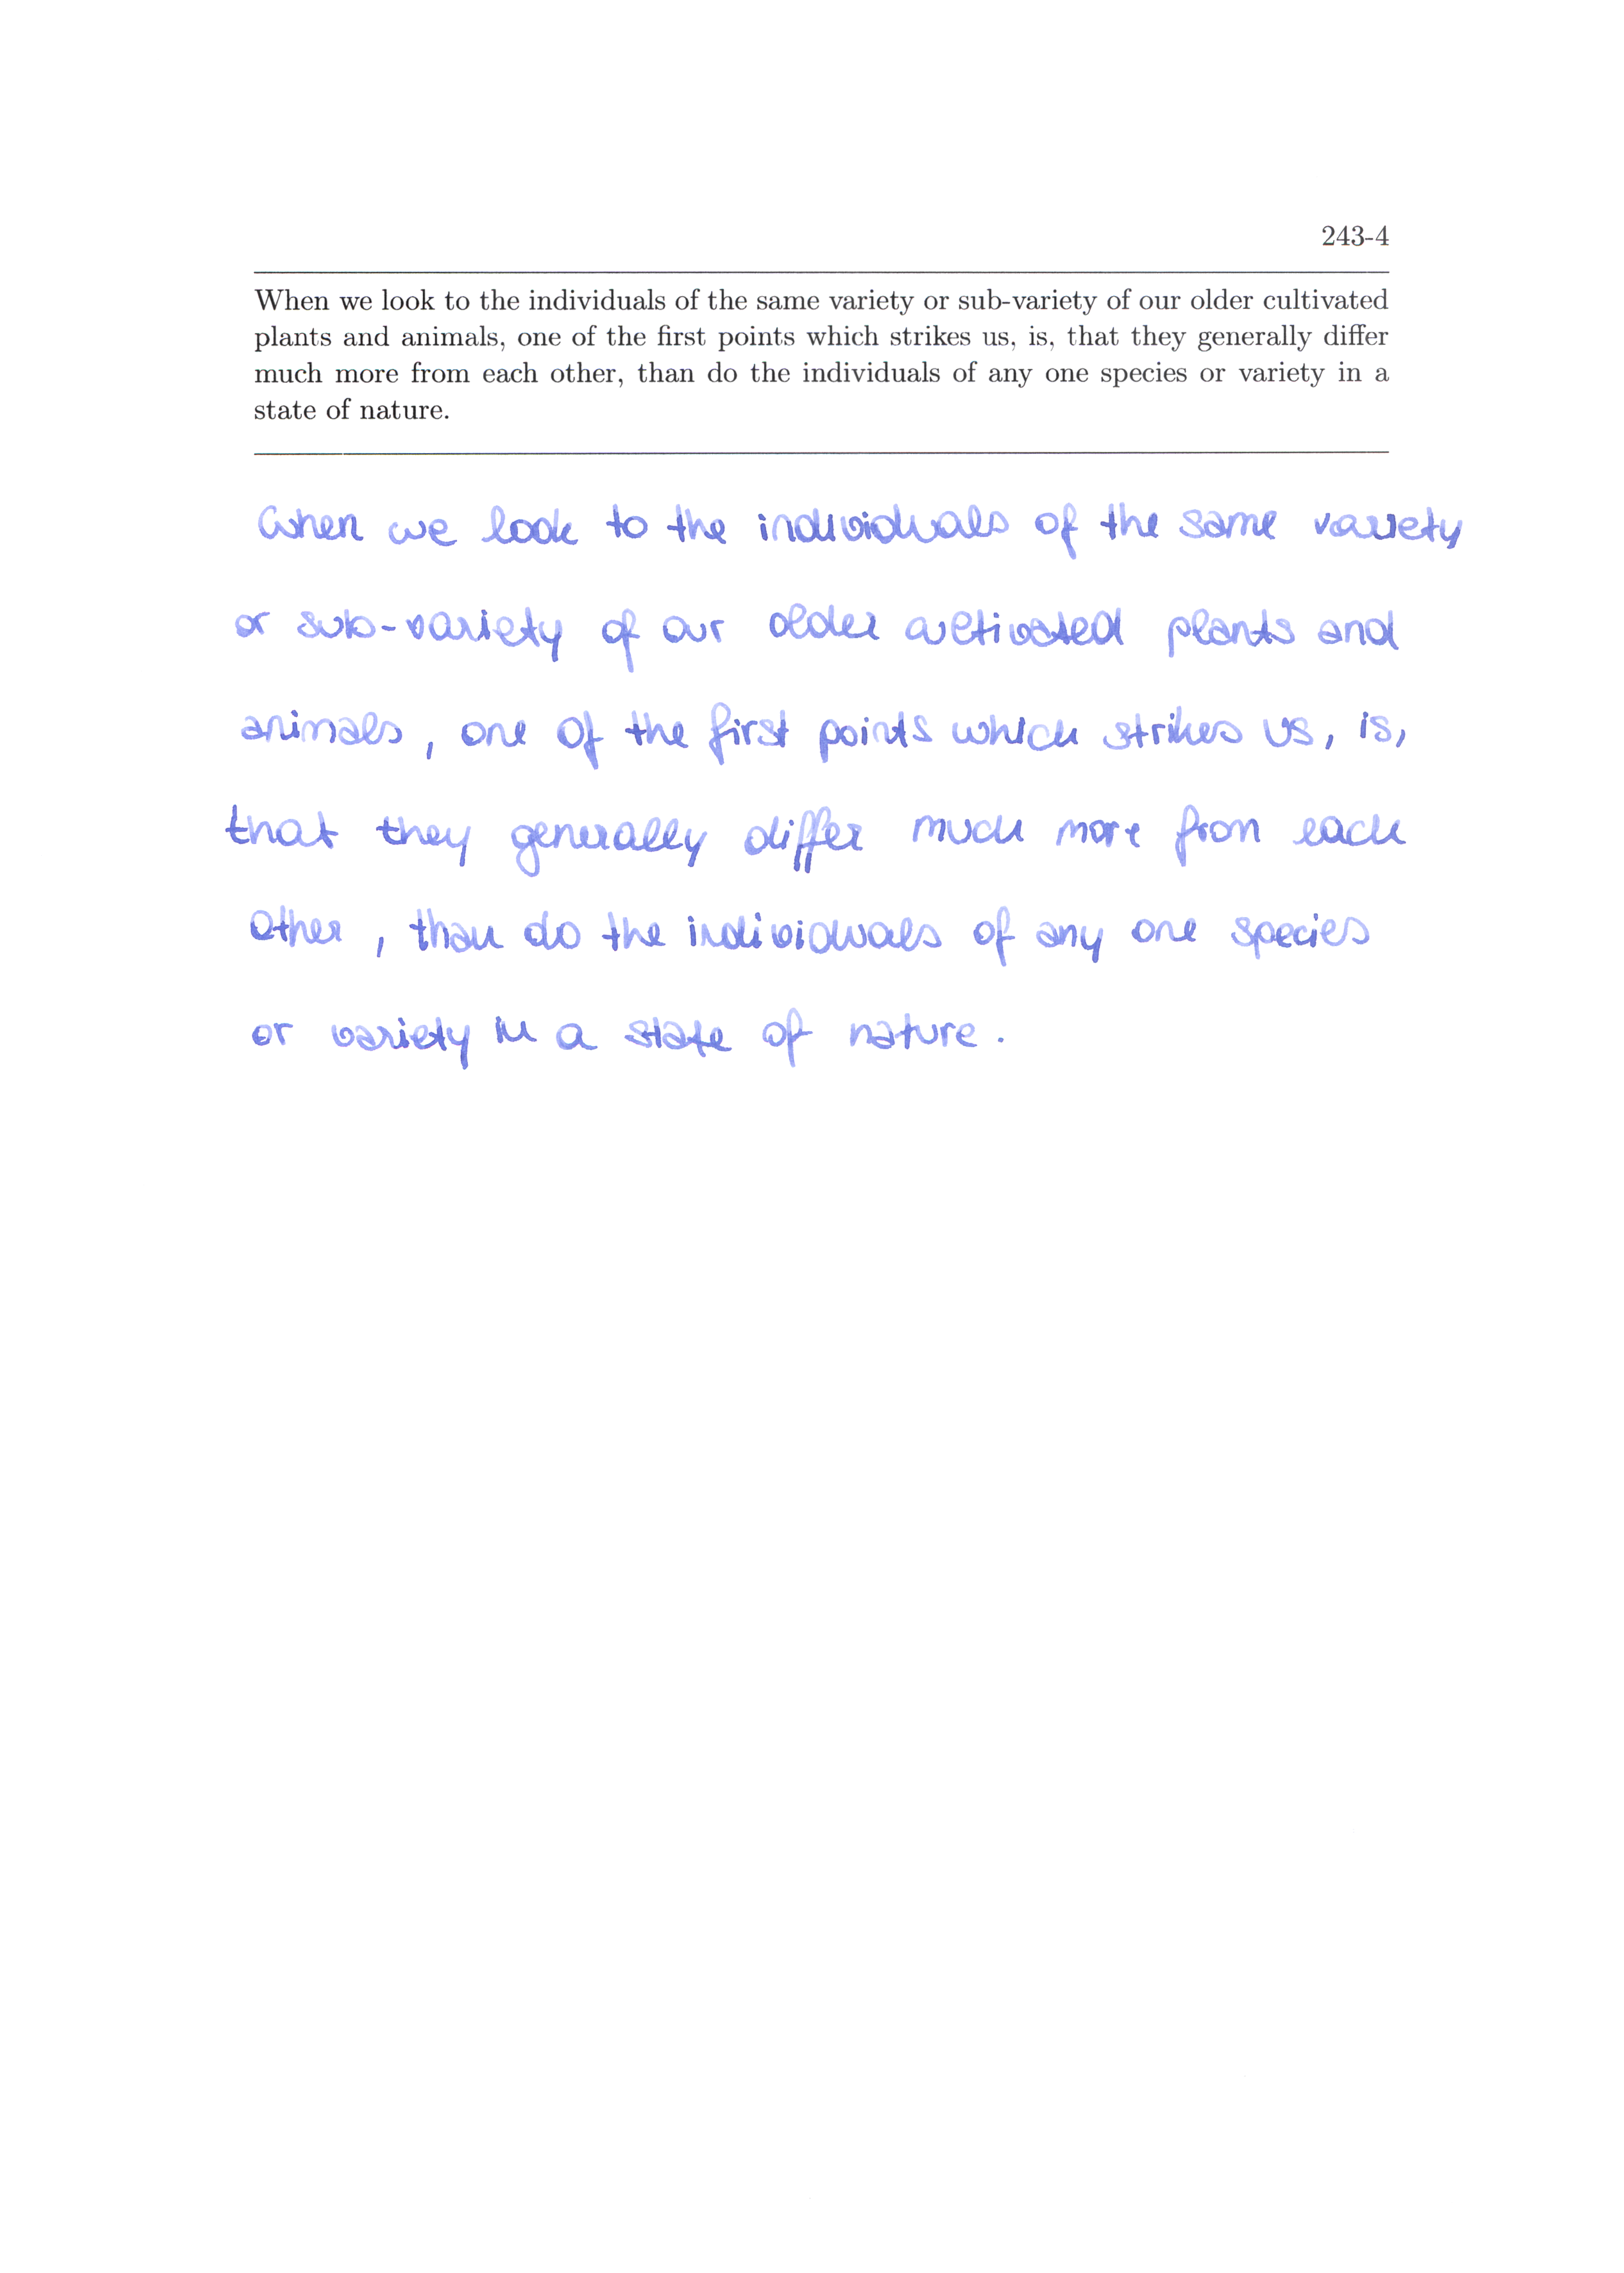 243-4
When we look to the individuals of the same variety or sub-variety of our older cultivated
plants and animals, one of the first points which strikes us, is, that they generally differ
much more from each other, than do the individuals of any one species or variety in a
state of nature.
When we look to the individuals of the same variety
or sub-variety of our older cultivated plants and
animals, one of the first points which strikes us, is,
that they generally differ much more from each
other, than do the individuals of any one species
or variety in a state of nature.